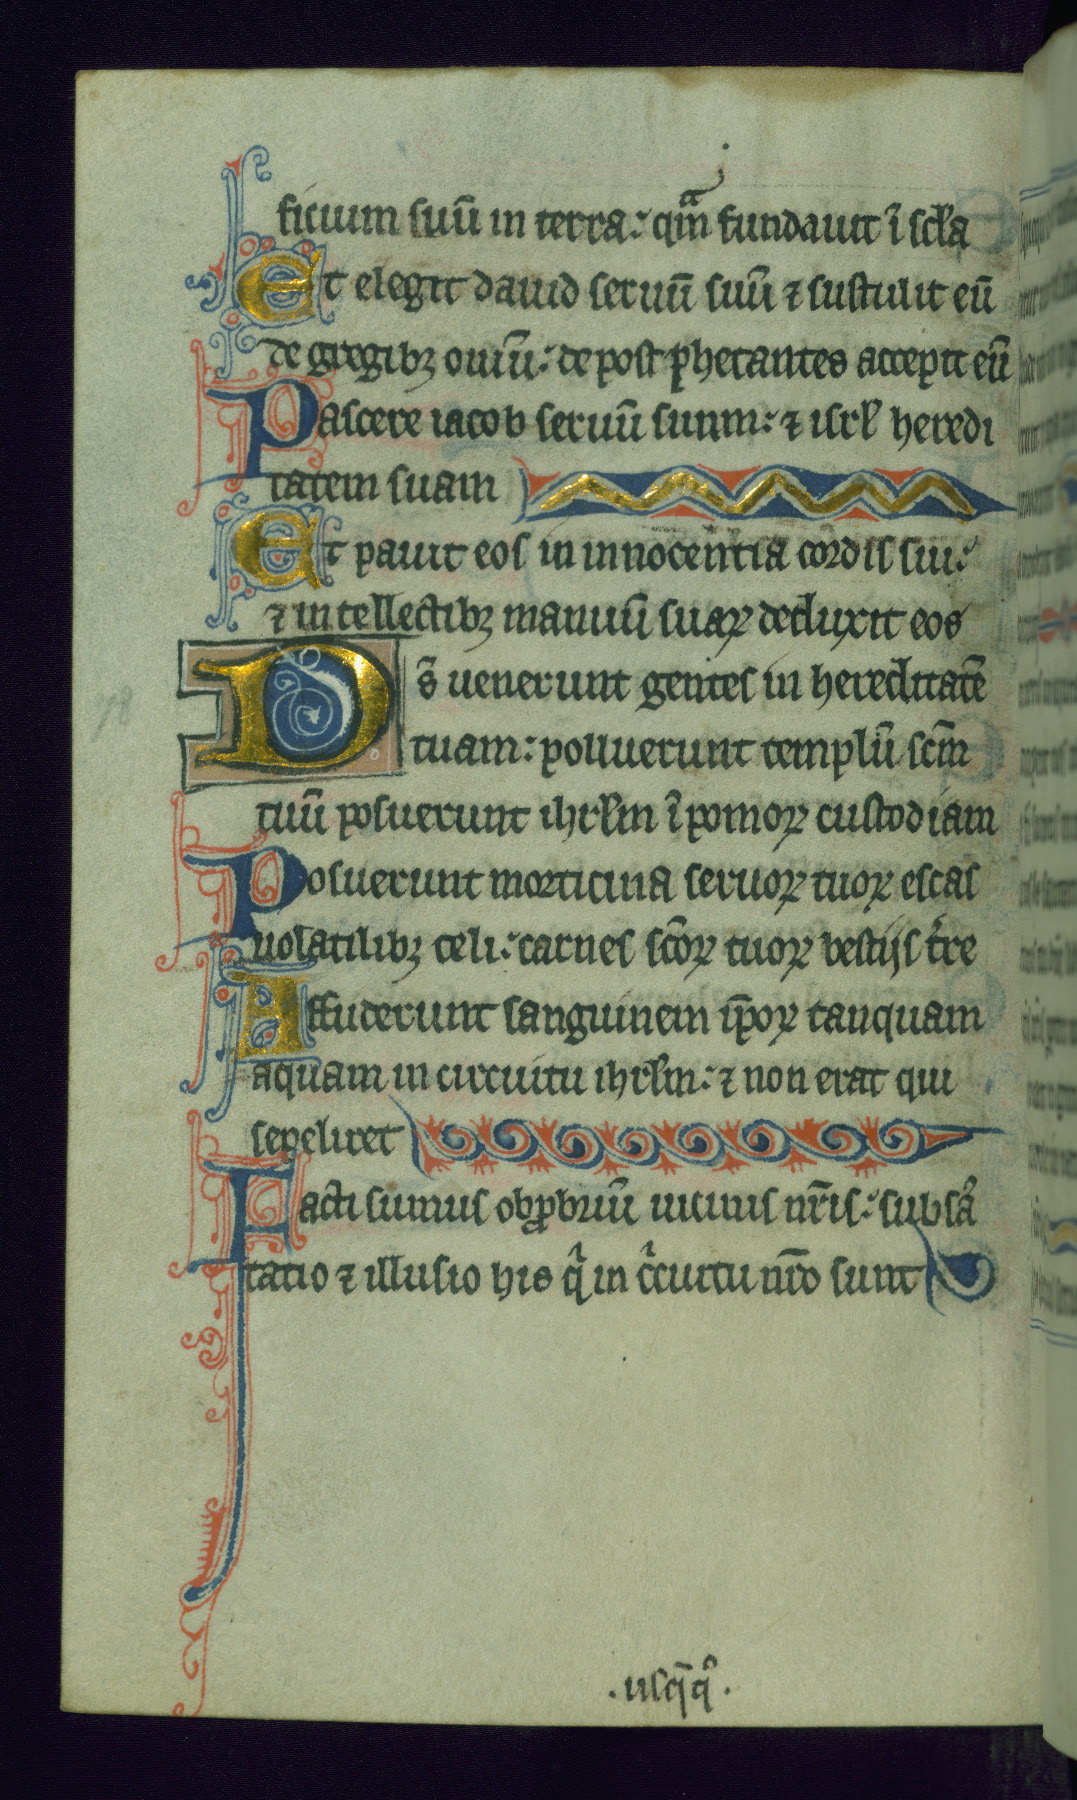 ficium suū in terra: qm̄ fundauit ī scła
Et elegit dauid seruū suū ⁊ sustulit eū
de gregibꝫ ouiū: de post ꝓhetantes accepit eū
Pascere iacob seruū suum: ⁊ isrł heredi
tatem suam
Et pauit eos in innocentia cordis sui:
⁊ in tellectibꝫ manuū suaꝝ deduxit eos
Ds̄ uenerunt gentes in hereditatē
tuam: polluerunt templū scm̄
tuū posuerunt ihrłm ī pomoꝝ custodiam
Posuerunt morticina seruoꝝ tuoꝝ escas
uolatilibꝫ celi: carnes scōꝝ tuoꝝ bestijs tr̄re
Affuderunt sanguinem ip̄oꝝ tanquam
aquam in circuitu ihrłm: ⁊ non erat qui
sepeliret
Facti sumus obꝓbriū uicinis nr̄is: subsā
tatio ⁊ illusio his qͥ in cͥcuitu nr̄o sunt
78
.usq̄qͦ.